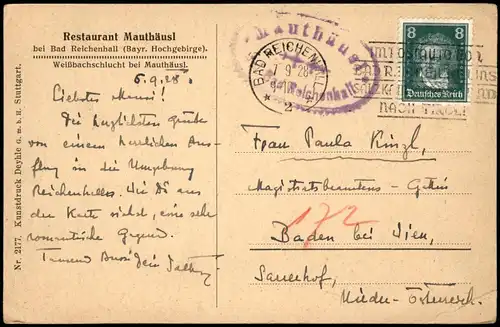 Restaurant Mauthäusl
bei Bad Reichenhall (Bayr. Hochgebirge).
Weißbachschlucht bei Mauthäusl.
Nr. 2177. Kunstdruck Deyhle G. m. b. H., Stuttgart.
6.9.28.
Liebster
Die herzlichsten Grüße
von einem herrlichen Aus-
flug in die Umgebung
Reichenhalls. Wie Du aus
der Karte siehst, eine sehr
romantische Gegend.
Tausend Bussi Dein
Mauthäusl
Reichenhall
BAD REICHENHALL
7.9.28
2
8 8
Deutsches Reich
MIT DEM AUTO VON
BAD REICHENHALL INS
NACH TIROL
Frau Paula Kinzl,
Magistratsbeamtens-Gattin
172
Baden bei Wien,
Sauerhof,
Nieder-Österreich.